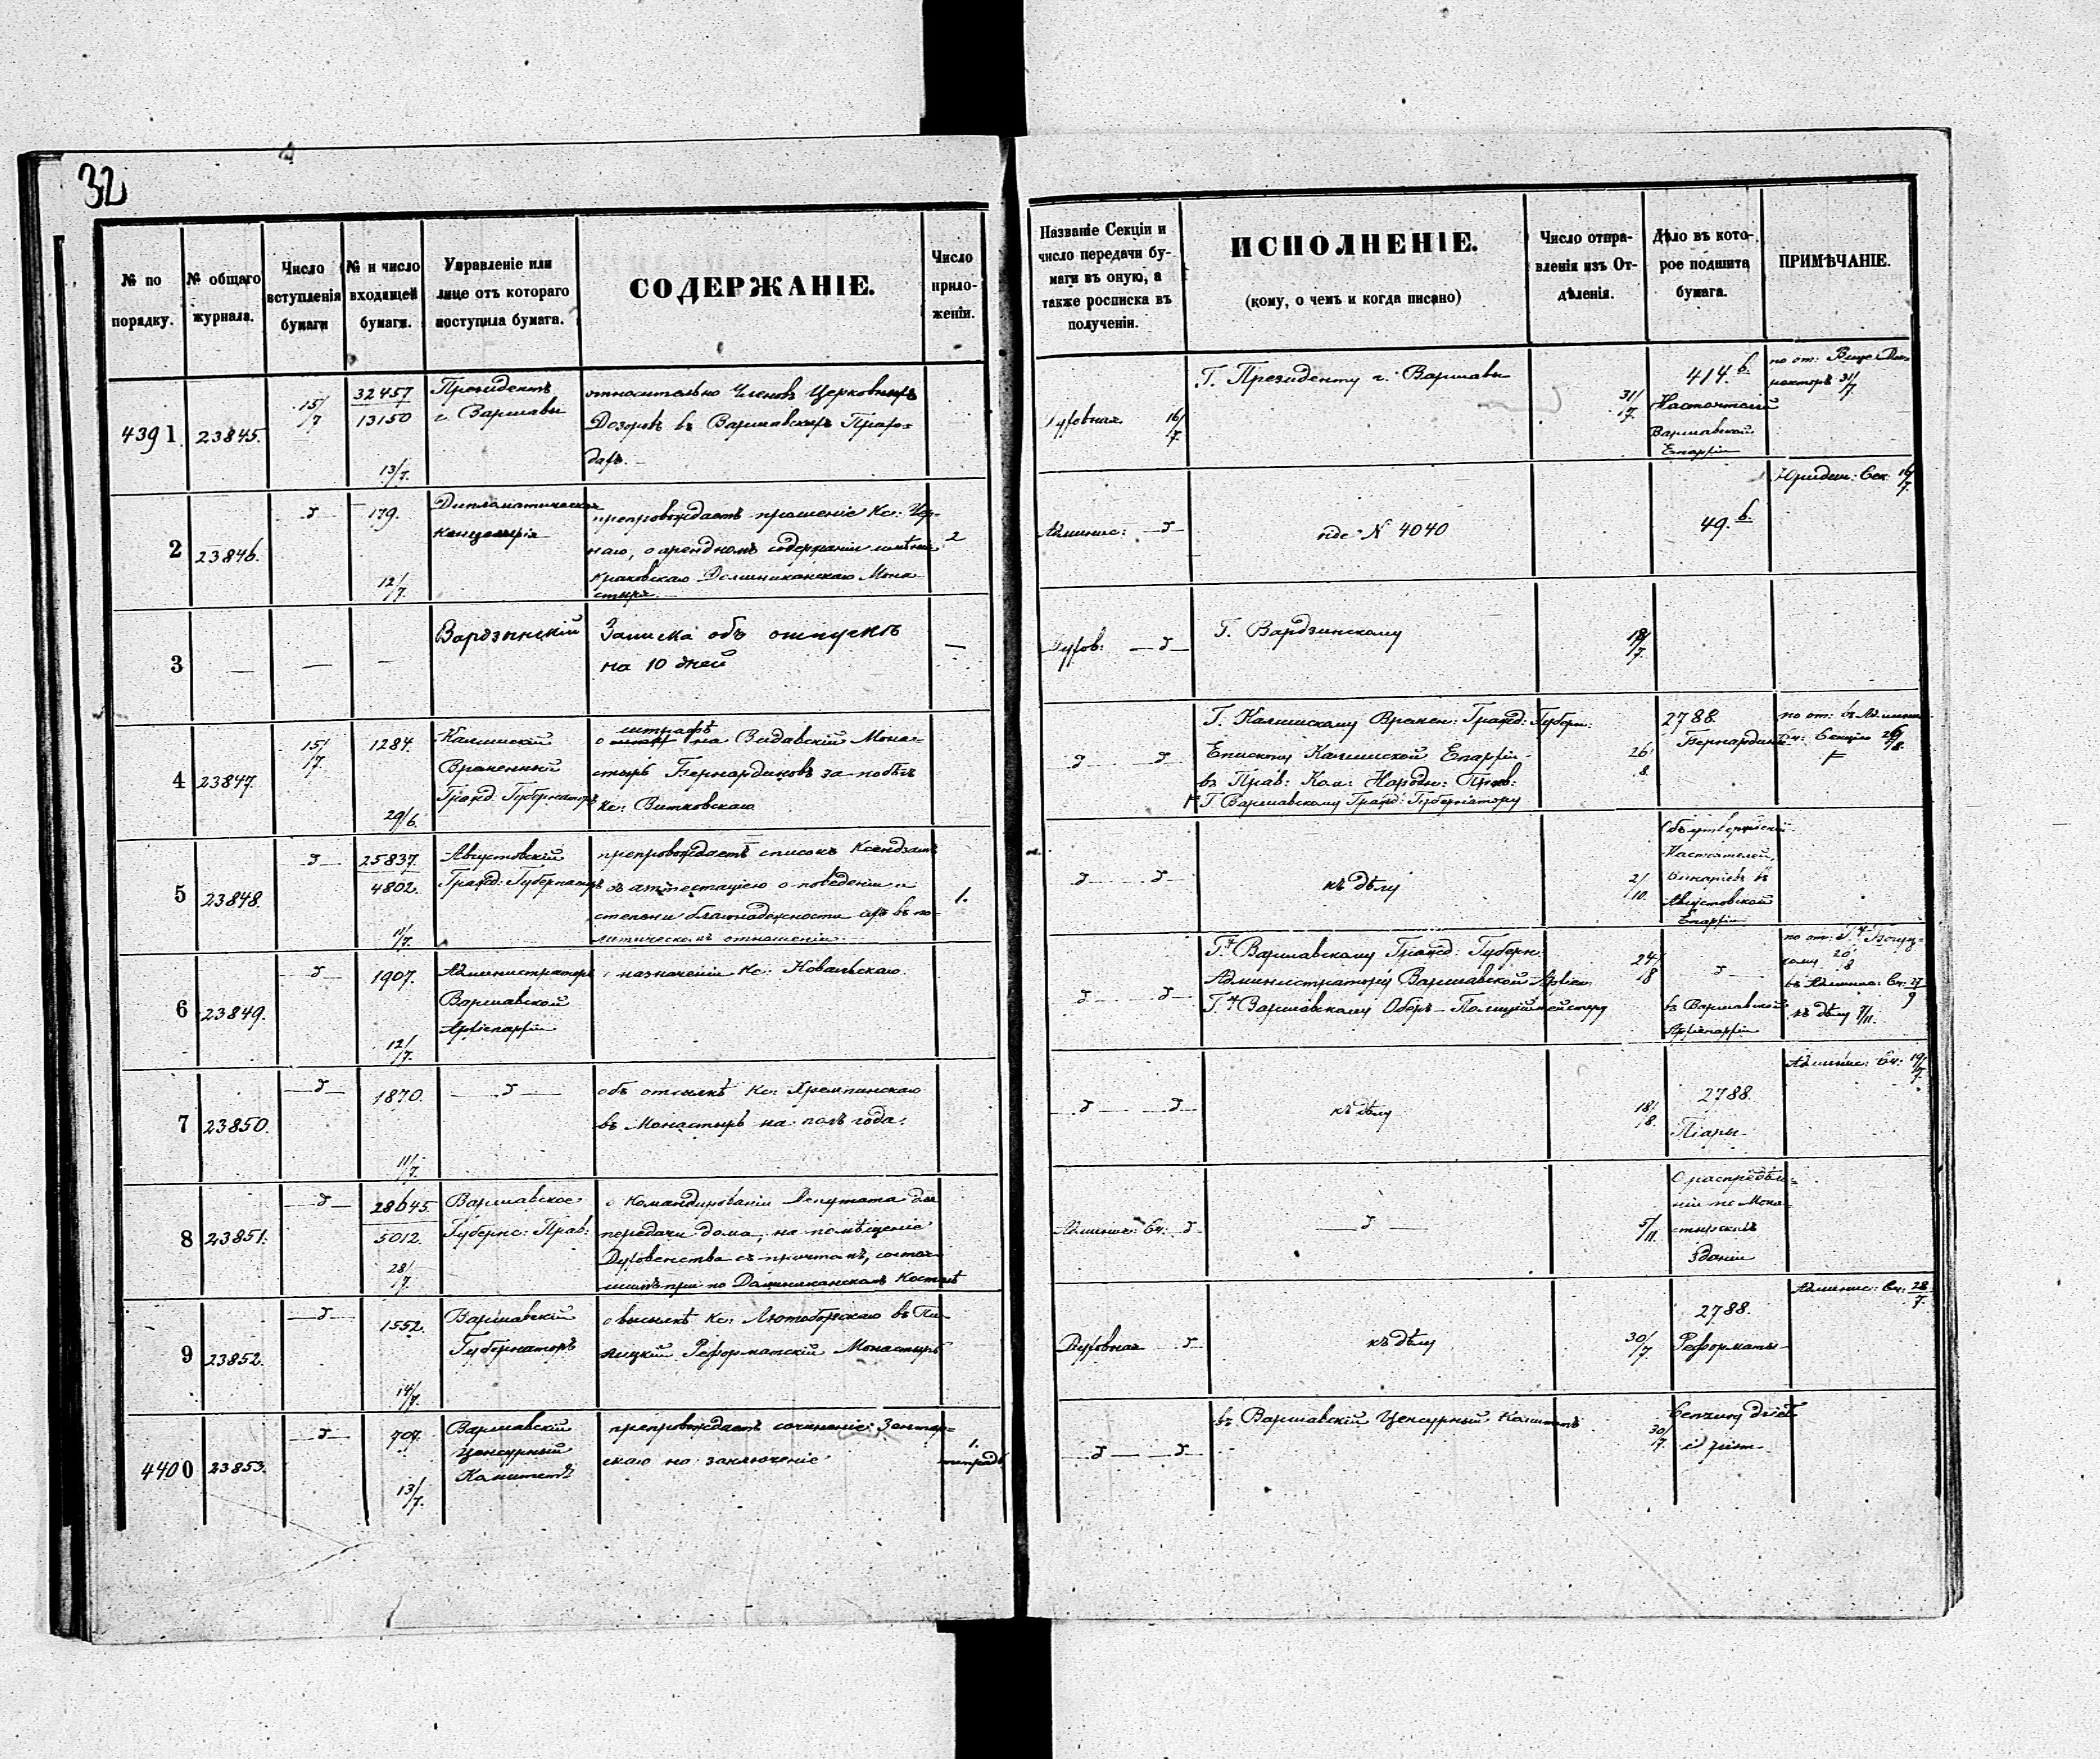 32
№ по порядку.
№ общаго журнала.
Число вступленія бумаги
№ и число входящей бумаги.
Управленіе или лице отъ котораго поступила бумага.
СОДЕРЖАНІЕ.
Число приложеніи.
Названіе Секціи и число передачи бумаги въ оную, а также росписка въ полученіи.
ИСПОЛНЕНІЕ.
(кому, о чемъ и когда писано)
Число отправленія изъ Отдѣленія.
Дѣло въ которое подшита бумага.
ПРИМѢЧАНІЕ.
4391.
23845.
15/7
32457
13150
13/7.
Президентъ
г. Варшавы
относительно Членовъ Церковныхъ
Дозоровъ въ Варшавскихъ Прихо=
дахъ.
Духовная
16/7
Г. Президенту г. Варшавы
31/7.
414.b.
Варшавской
Епархіи
по от: Вице Ди=
ректоръ 31/7.
2
23846.
179.
12/7.
Дипломатическая
Канцелярія
препровождаетъ прошеніе Кс: Чер-
наго, о арендномъ содержаніи имѣнія
Краковскаго Доминиканскаго Мона-
стыря.
2
Админис:
N 4040
49.b.
Юридич: Сек: 16/7.
3
—
—
—
Вардзинскій
Записка объ отпускѣ
на 10 дней
—
Духов:
Г. Вардзинскому
18/7.
4
23847.
15/7
1284.
29/6.
Калишскій
Временный
Гражд: Губернаторъ
штрафѣ
о на Видавскій Мона=
стырь Бернардиновъ за побѣгъ
Кс: Витковскаго
Г. Калишскому Времен: Гражд: Губерн:
Епископу Калишской Епархіи
въ Прав: Ком: Народн: Просв:
Г. Варшавскому Гражд: Губернатору
26/8.
2788.
Бернардины
по от: въ Админис:
Сч: Секцію 26/8.
5
23848.
25837.
4802.
11/7.
Августовскій
Гражд: Губернаторъ
препровождаетъ списокъ Ксендзамъ
съ аттестаціею о поведеніи и
степени благонадежности ихъ въ по-
литическомъ отношеніи.
1.
къ дѣлу
2/10.
Объ утвержденіи
Настоятелей,
Викаріевъ въ
Августовской
Епархіи
6
23849.
1907.
12/7.
Администраторъ
Варшавской
Архіепархіи
о назначеніи Кс: Ковальскаго.
Г. Варшавскому Гражд: Губерн:
Администратору Варшавской Архіеп:
Г. Варшавскому Оберъ-Полицiймейстеру
24/8
въ Варшавской
Архіепархіи
къ дѣлу 7/11.
7
23850.
1870.
11/7.
объ отсылкѣ Кс: Хремпинскаго
въ Монастырь на полъ года.
къ дѣлу
18/8.
2788.
Піары
Админис: Сч: 19/7.
8
23851.
28645.
5012.
28/7.
Варшавское
Губернс: Прав:
о командированіи Депутата для
передачи дома, на помѣщеніе
Духовенства съ причтомъ,
при по Доминиканскомъ Костелѣ
Админис: Сч:
5/11.
О распредѣле=
ніи по Мона-
стырскихъ
Зданіи
9
23852.
1552.
14/7.
Варшавскій
Губернаторъ
о высылкѣ Кс: Лютоборскаго въ Пи-
лицкій Реформатскій Монастырь
Духовная
къ дѣлу
30/7.
2788.
Реформаты
Админис: Сч: 28/7.
4400
23853.
707.
13/7.
Варшавскій
Цензурный
Комитетъ
препровождаетъ сочиненіе
на заключеніе
1.
тетрадь
въ Варшавскій Цензурный Комитетъ
30/7.
Cenzury dzieł
i pism